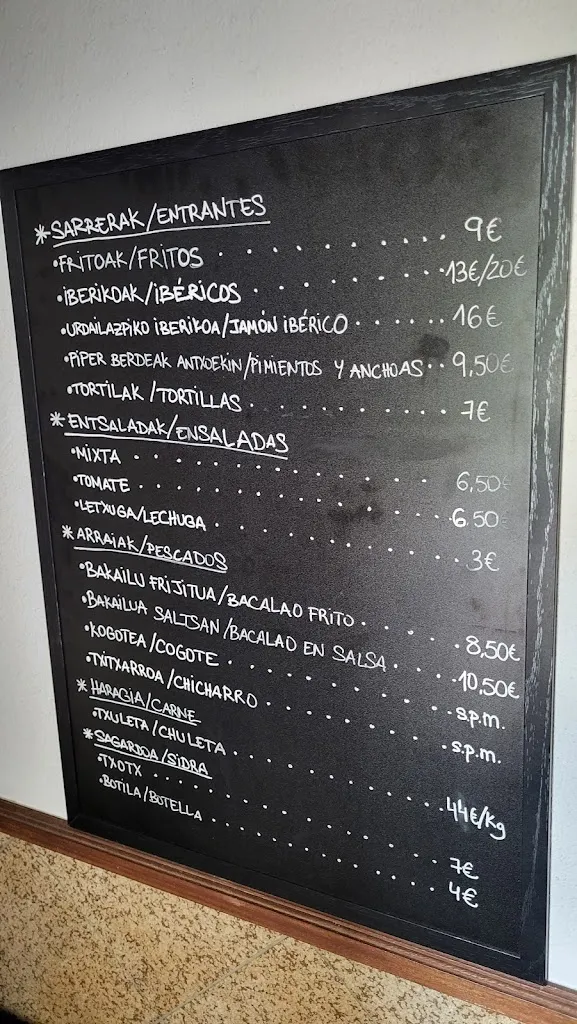 *SARRERAK/ENTRANTES
•FRITOAK/FRITOS . . . . . . . . . . 9€
•IBERIKOAK/IBÉRICOS . . . . . . . . 13€/20€
•URDAILAZPIKO IBERIKOA/JAMÓN IBÉRICO . . . . . . 16€
•PIPER BERDEAK ANTXOEKIN/PIMIENTOS Y ANCHOAS . . 9,50€
•TORTILAK/TORTILLAS . . . . . . . . 7€
*ENTSALADAK/ENSALADAS
•MIXTA . . . . . . . . . . . . . . 6,50€
•TOMATE . . . . . . . . . . . . . . 6,50
•LETXUGA/LECHUGA . . . . . . . . . . 3€
*ARRAIAK/PESCADOS
•BAKAILU FRIJITUA/BACALAO FRITO . . . . . 8,50€
•BAKAILUA SALTSAN/BACALAO EN SALSA . . . . 10,50€
•KOGOTEA/COGOTE . . . . . . . . . . s.p.m.
•TXITXARROA/CHICHARRO . . . . . . . . s.p.m.
*HARAGIA/CARNE
•TXULETA/CHULETA . . . . . . . . . . 44€/Kg
*SAGARDOA/SIDRA
•TXOTX . . . . . . . . . . . . . . 7€
•BOTILA/BOTELLA . . . . . . . . . . 4€